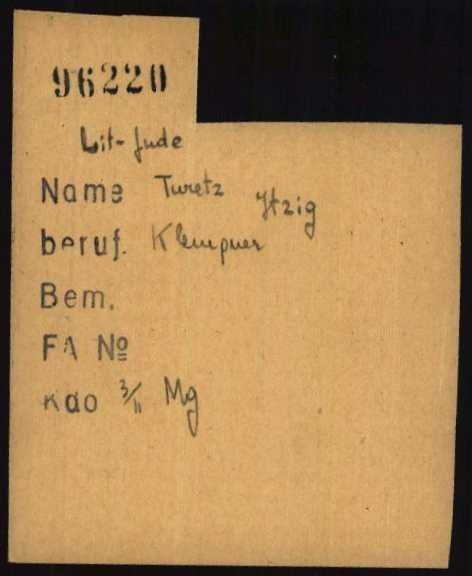 96220
Lit-Jude
Name Turetz Itzig
beruf. Klempner
Bem.
FA №
Kdo 3/11 Mg